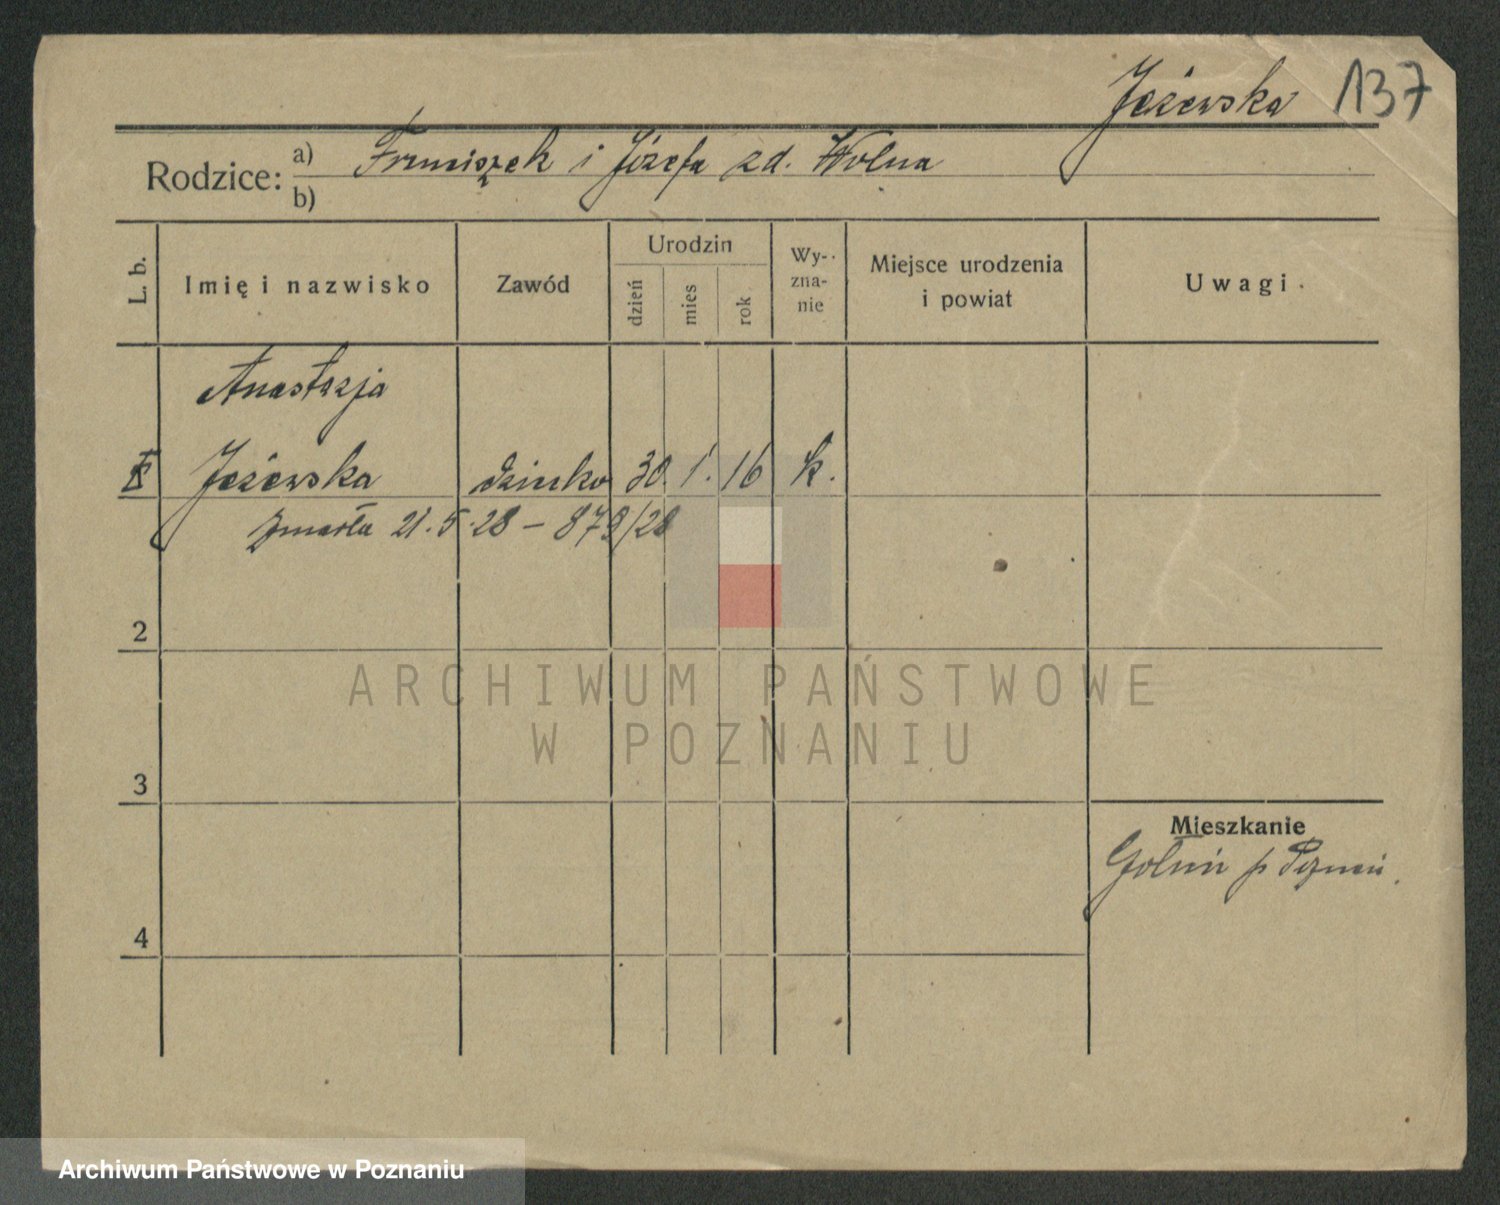 Jeżewska 137
Rodzice: a) Franciszek i Józefa zd. Wolna
b)
L. b.
Imię i nazwisko
Zawód
Urodzin
dzień
mies
rok
Wy-
zna-
nie
Miejsce urodzenia
i powiat
Uwagi
Anastazja
Jeżewska dziecko 30. 1. 16 k.
zmarła 21.5.28 – 879/28
2
ARCHIWUM PAŃSTWOWE
W POZNANIU
3
Mieszkanie
p Poznań.
4
Archiwum Państwowe w Poznaniu